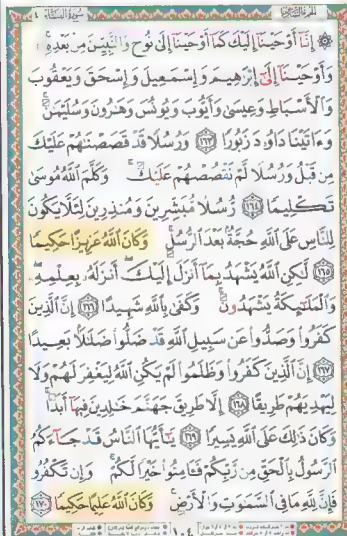 سورة النساء ٤
۞ إِنَّا أَوْحَيْنَا إِلَيْكَ كَمَا أَوْحَيْنَا إِلَىٰ نُوحٍ وَالنَّبِيِّينَ مِن بَعْدِهِ ۚ
وَأَوْحَيْنَا إِلَىٰ إِبْرَٰهِيمَ وَإِسْمَٰعِيلَ وَإِسْحَٰقَ وَيَعْقُوبَ
وَالْأَسْبَاطِ وَعِيسَىٰ وَأَيُّوبَ وَيُونُسَ وَهَٰرُونَ وَسُلَيْمَٰنَ ۚ
وَءَاتَيْنَا دَاوُۥدَ زَبُورًا ١٦٣ وَرُسُلًا قَدْ قَصَصْنَٰهُمْ عَلَيْكَ
مِن قَبْلُ وَرُسُلًا لَّمْ نَقْصُصْهُمْ عَلَيْكَ ۚ وَكَلَّمَ اللَّهُ مُوسَىٰ
تَكْلِيمًا ١٦٤ رُّسُلًا مُّبَشِّرِينَ وَمُنذِرِينَ لِئَلَّا يَكُونَ
لِلنَّاسِ عَلَى اللَّهِ حُجَّةٌ بَعْدَ الرُّسُلِ ۚ وَكَانَ اللَّهُ عَزِيزًا حَكِيمًا
١٦٥ لَّٰكِنِ اللَّهُ يَشْهَدُ بِمَا أَنزَلَ إِلَيْكَ ۖ أَنزَلَهُۥ بِعِلْمِهِۦ ۖ
وَالْمَلَٰئِكَةُ يَشْهَدُونَ ۚ وَكَفَىٰ بِاللَّهِ شَهِيدًا ١٦٦ إِنَّ الَّذِينَ
كَفَرُوا وَصَدُّوا عَن سَبِيلِ اللَّهِ قَدْ ضَلُّوا ضَلَٰلًا بَعِيدًا
١٦٧ إِنَّ الَّذِينَ كَفَرُوا وَظَلَمُوا لَمْ يَكُنِ اللَّهُ لِيَغْفِرَ لَهُمْ وَلَا
لِيَهْدِيَهُمْ طَرِيقًا ١٦٨ إِلَّا طَرِيقَ جَهَنَّمَ خَٰلِدِينَ فِيهَا أَبَدًا ۚ
وَكَانَ ذَٰلِكَ عَلَى اللَّهِ يَسِيرًا ١٦٩ يَٰأَيُّهَا النَّاسُ قَدْ جَاءَكُمُ
الرَّسُولُ بِالْحَقِّ مِن رَّبِّكُمْ فَـَٔامِنُوا خَيْرًا لَّكُمْ ۚ وَإِن تَكْفُرُوا
فَإِنَّ لِلَّهِ مَا فِي السَّمَٰوَٰتِ وَالْأَرْضِ ۚ وَكَانَ اللَّهُ عَلِيمًا حَكِيمًا ١٧٠
١٠٤